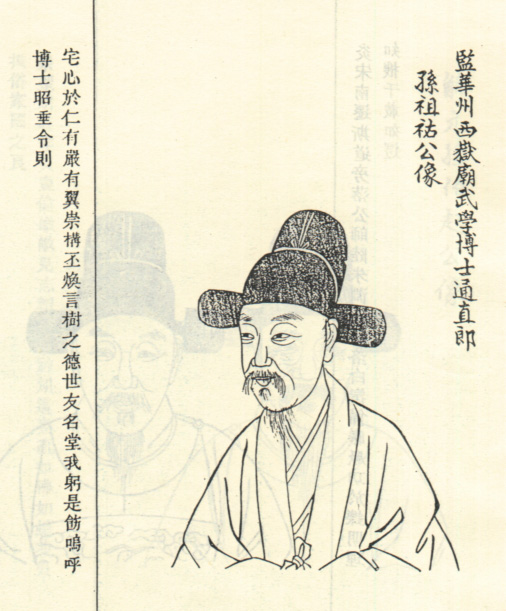 監華州西嶽廟武學博士通直郎
孫祖祐公像
宅心於仁有嚴有翼崇構丕煥言樹之德世友名堂我躬是飭嗚呼
博士昭垂令則